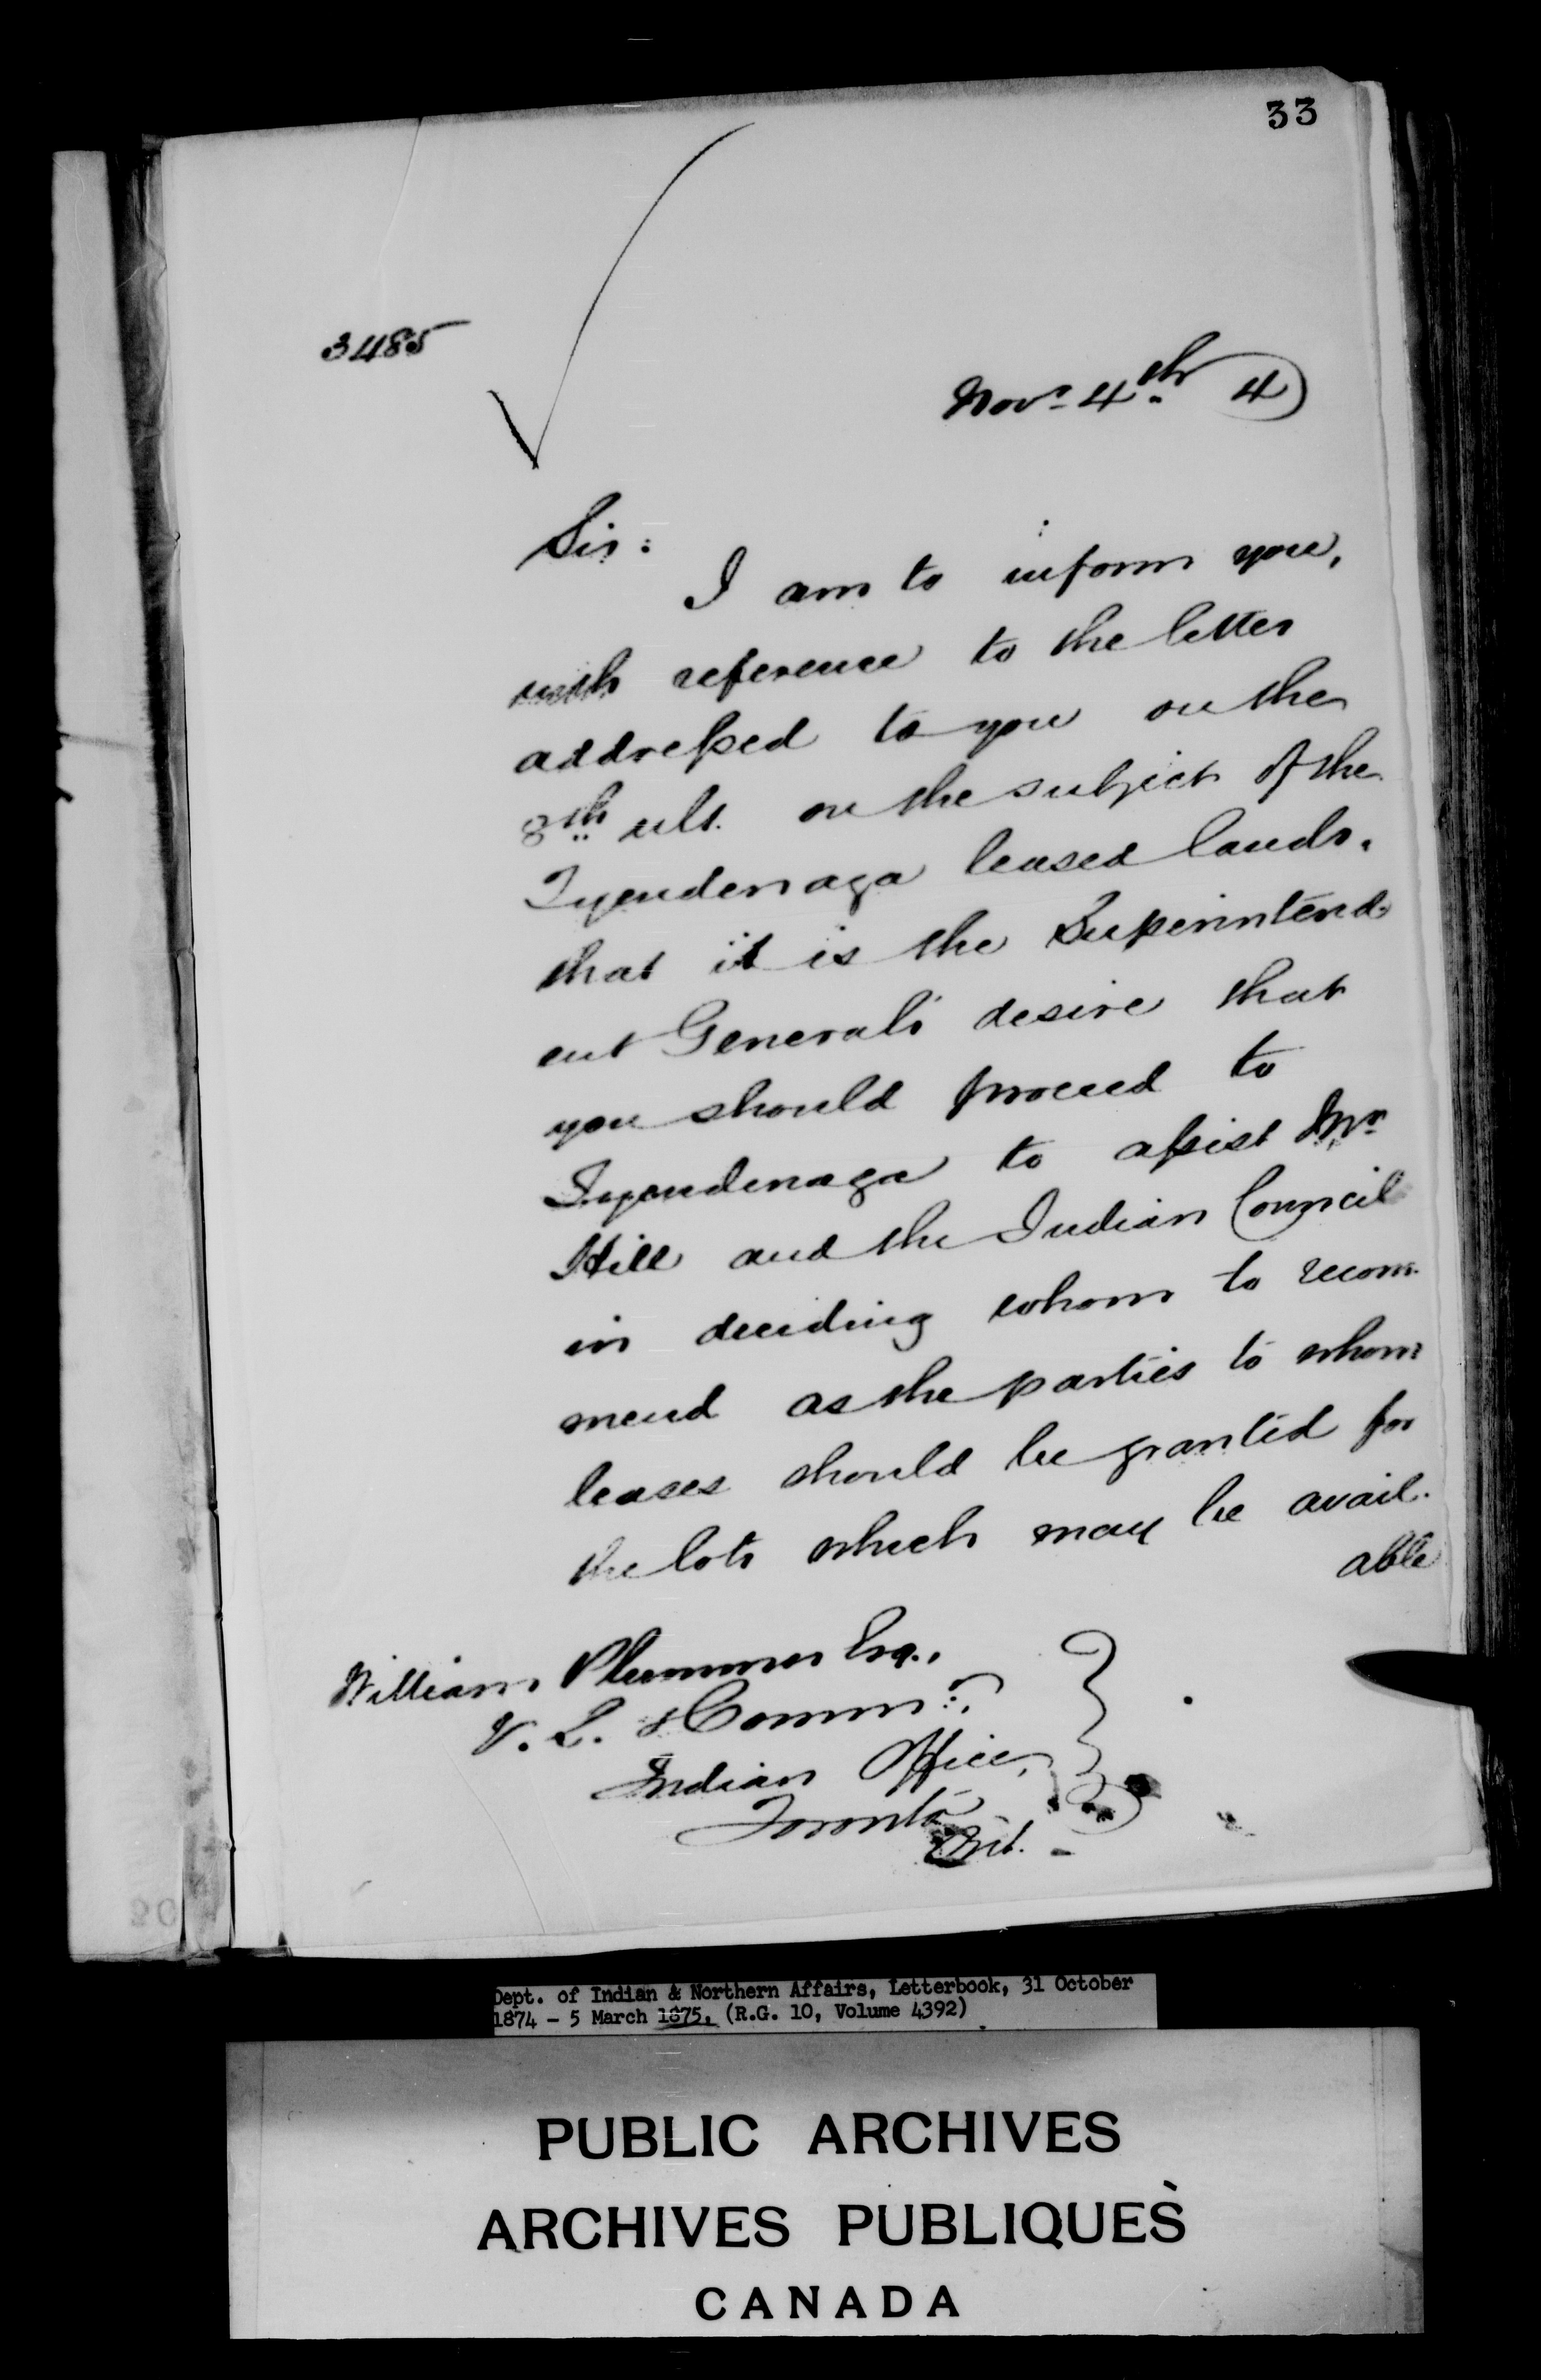 33
3485
Novr 4th 4
Sir:
I am to inform you,
with reference to the letter
addressed to you on the
8th ult. on the subject of the
Tyendenaga leased lands,
that it is the Superintend-
ent General's desire that
you should proceed to
Tyendenaga to assist Mr
Hill and the Indian Council
in deciding whom to recom-
mend as the parties to whom
leases should be granted for
the lots which may be avail-
able
William Plummer Esq.,
V. S. & Commr.,
Indian Office,
Toronto
Ont.
Dept. of Indian & Northern Affairs, Letterbook, 31 October
1874 - 5 March 1875. (R.G. 10, Volume 4392)
PUBLIC ARCHIVES
ARCHIVES PUBLIQUES
CANADA